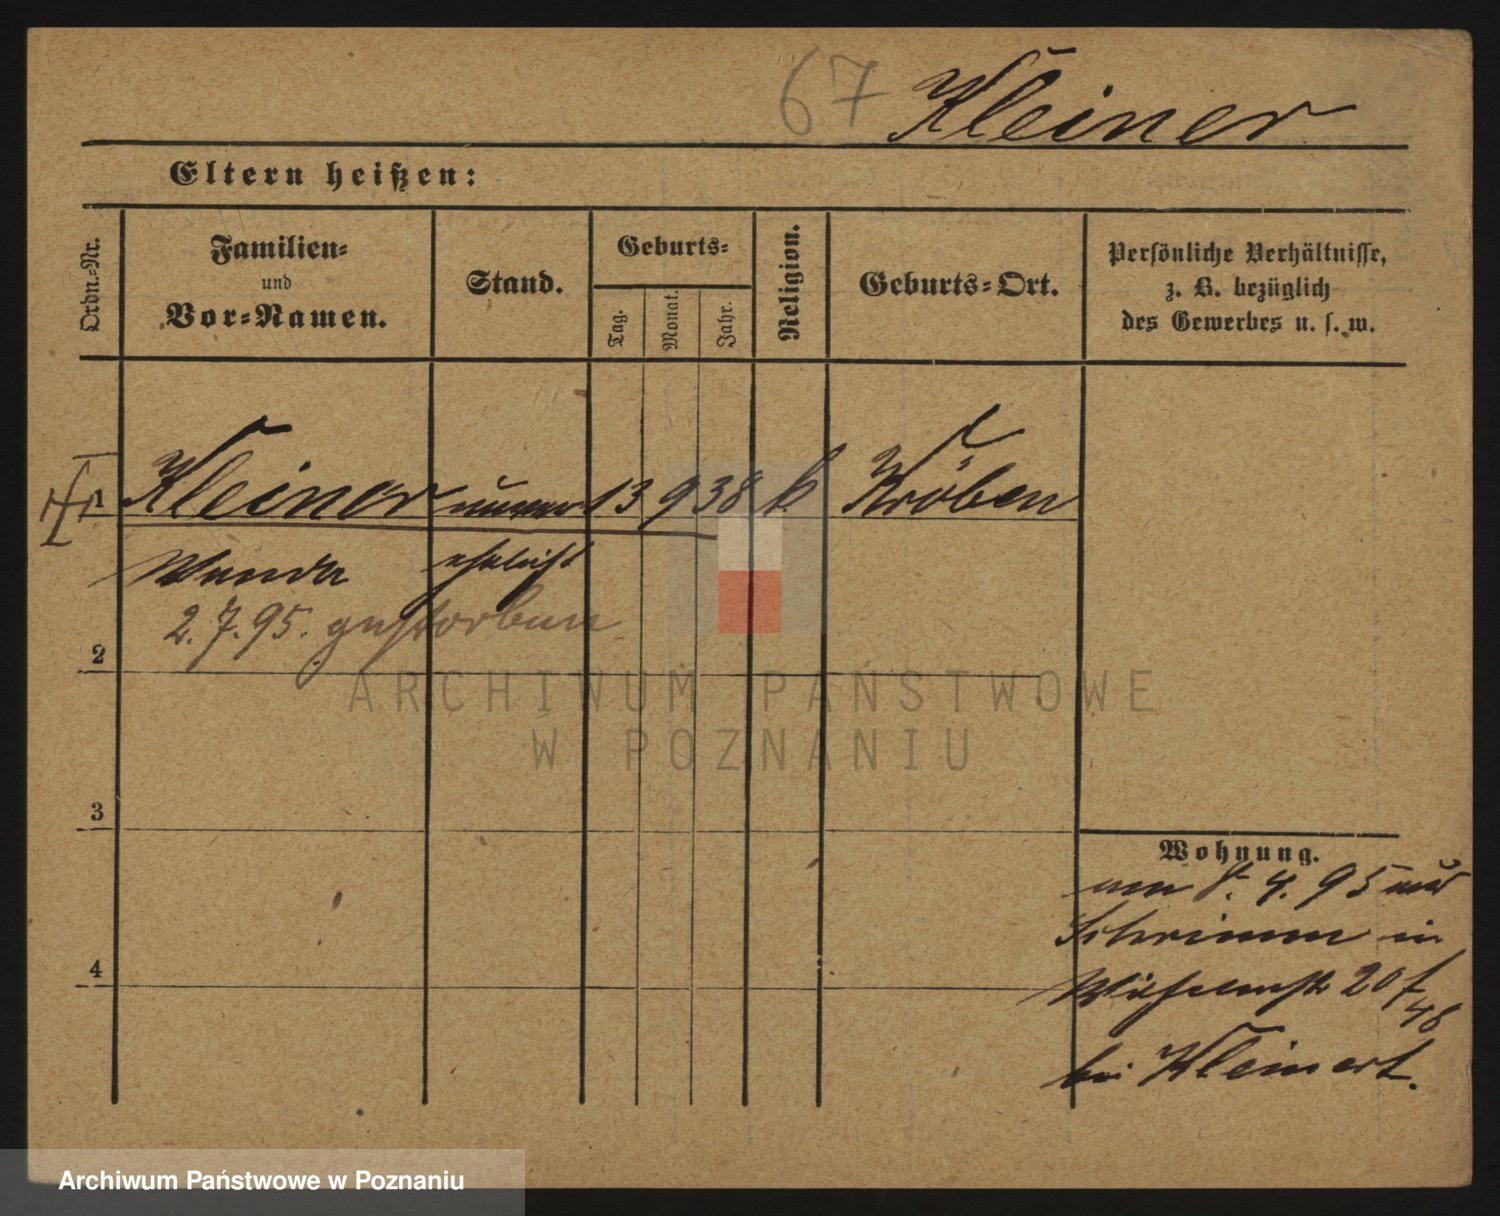 67 Kleiner
Eltern heißen:
Ordn.-Nr.
Familien-
und
Vor-Namen.
Stand.
Geburts-
Tag.
Monat.
Jahr.
Religion.
Geburts-Ort.
Persönliche Verhältnisse,
z. B. bezüglich
des Gewerbes u. s. w.
1 Kleiner unver 13 9 38 k Kröben
Wanda ehelicht
2.7.95. gestorben
2
ARCHIWUM PAŃSTWOWE
W POZNANIU
3
4
Wohnung.
4. 95 aus
Schrimm in
20
bei Kleinert.
Archiwum Państwowe w Poznaniu